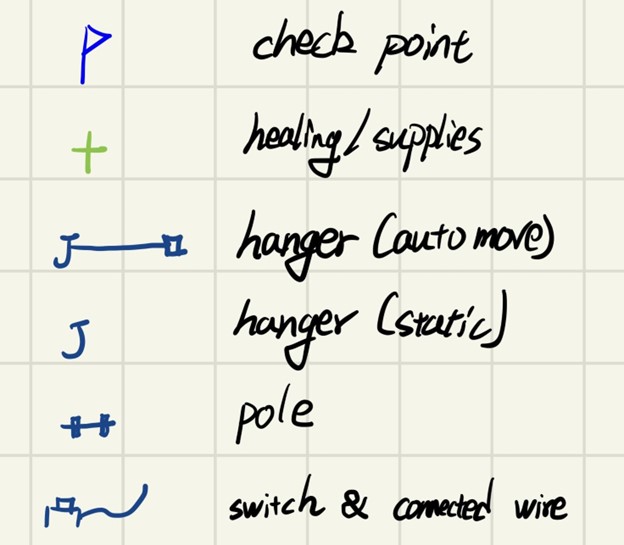 check point
healing/supplies
J hanger (auto move)
J hanger (static)
pole
switch & connected wire